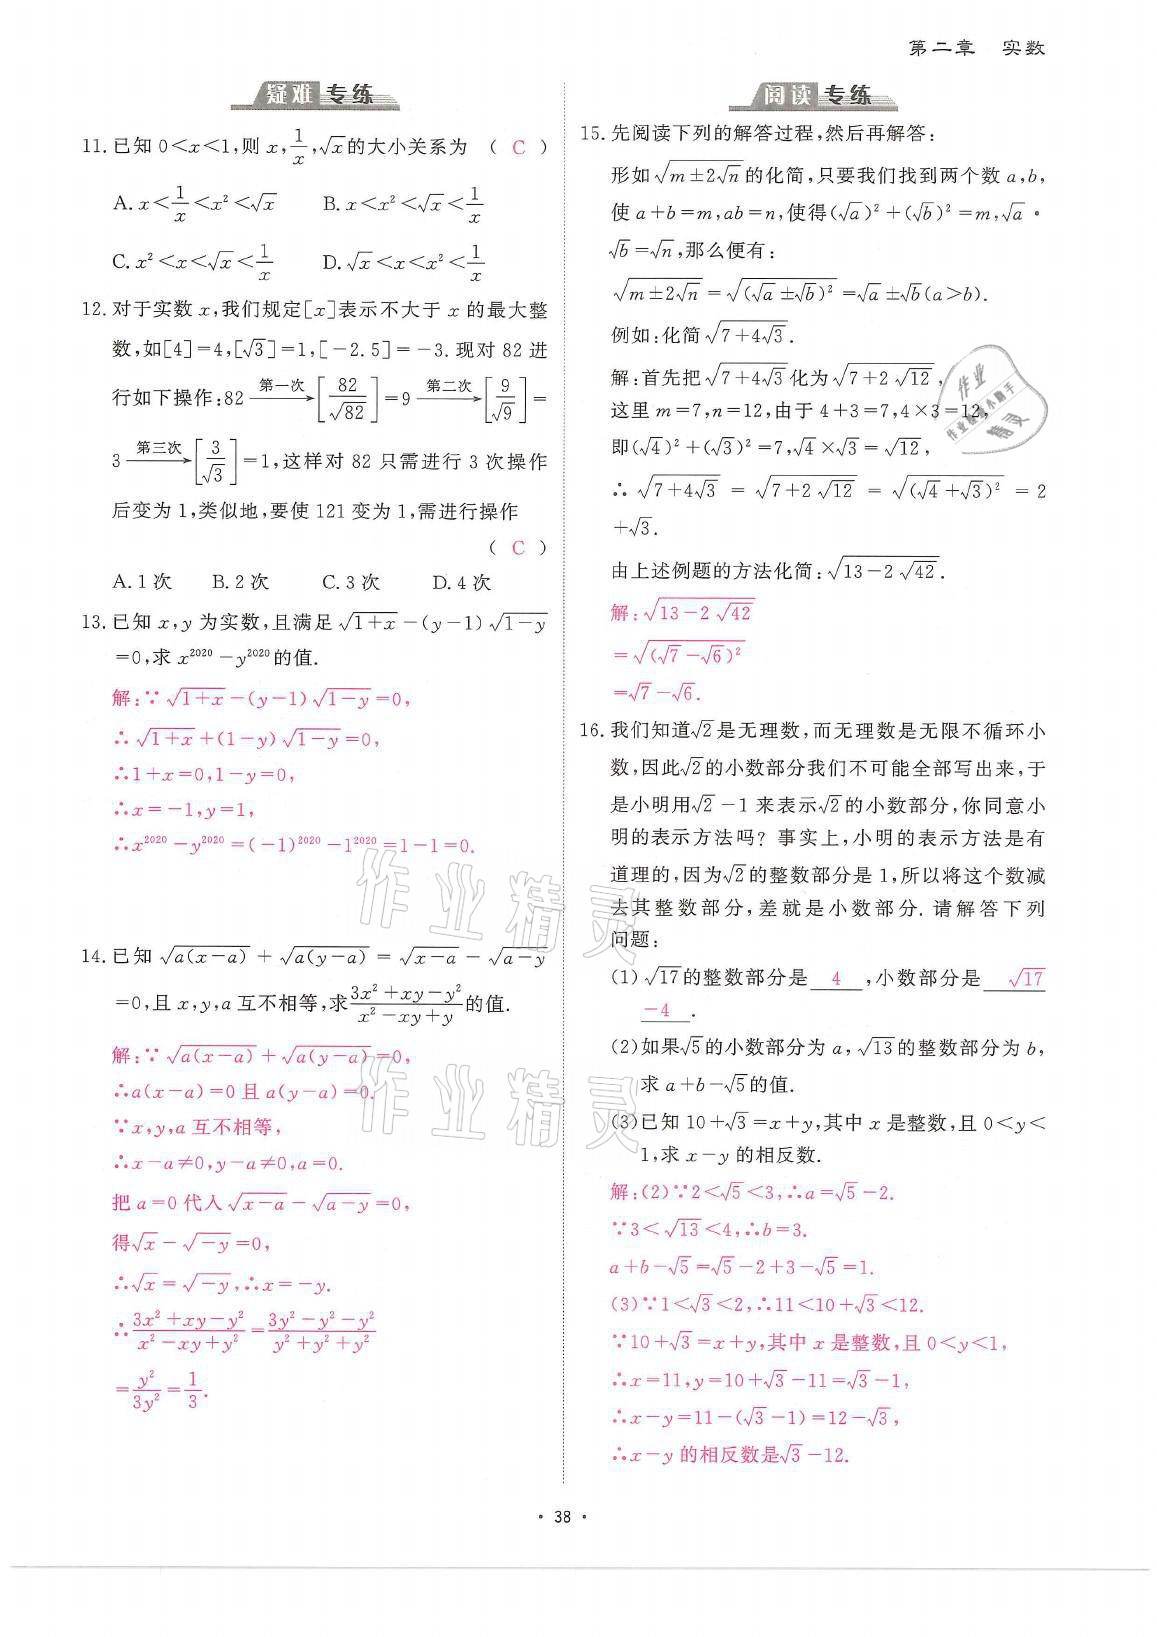 第二章 实数
疑难 专练
11. 已知 0<x<1,则 x, 1/x, √x的大小关系为 ( C )
A. x<1/x<x²<√x B. x<x²<√x<1/x
C. x²<x<√x<1/x D. √x<x<x²<1/x
12. 对于实数 x,我们规定[x]表示不大于 x 的最大整
数,如[4]=4,[√3]=1,[-2.5]=-3. 现对 82 进
行如下操作:82 —第一次→ [82/√82]=9 —第二次→ [9/√9]=
3 —第三次→ [3/√3]=1,这样对 82 只需进行 3 次操作
后变为 1,类似地,要使 121 变为 1,需进行操作
( C )
A. 1 次 B. 2 次 C. 3 次 D. 4 次
13. 已知 x,y 为实数,且满足 √(1+x)-(y-1)√(1-y)
=0,求 x²⁰²⁰-y²⁰²⁰的值.
解:∵ √(1+x)-(y-1)√(1-y)=0,
∴ √(1+x)+(1-y)√(1-y)=0,
∴1+x=0,1-y=0,
∴x=-1,y=1,
∴x²⁰²⁰-y²⁰²⁰=(-1)²⁰²⁰-1²⁰²⁰=1-1=0.
14. 已知 √(a(x-a)) + √(a(y-a)) = √(x-a) - √(a-y)
=0,且 x,y,a 互不相等,求(3x²+xy-y²)/(x²-xy+y)的值.
解:∵ √(a(x-a)) + √(a(y-a))=0,
∴a(x-a)=0 且 a(y-a)=0.
∵x,y,a 互不相等,
∴x-a≠0,y-a≠0,a=0.
把 a=0 代入 √(x-a) - √(a-y)=0,
得√x - √(-y)=0,
∴√x = √(-y),∴x=-y.
∴(3x²+xy-y²)/(x²-xy+y²)=(3y²-y²-y²)/(y²+y²+y²)
=y²/3y²=1/3.
阅读 专练
15. 先阅读下列的解答过程,然后再解答:
形如√(m±2√n)的化简,只要我们找到两个数 a,b,
使 a+b=m,ab=n,使得(√a)²+(√b)²=m,√a·
√b=√n,那么便有:
√(m±2√n)=√((√a±√b)²)=√a±√b(a>b).
例如:化简√(7+4√3).
解:首先把√(7+4√3)化为√(7+2√12),
这里 m=7,n=12,由于 4+3=7,4×3=12,
即(√4)²+(√3)²=7,√4×√3=√12,
∴ √(7+4√3) = √(7+2√12) = √((√4+√3)²) = 2
+√3.
由上述例题的方法化简:√(13-2√42).
解:√(13-2√42)
=√((√7-√6)²)
=√7-√6.
16. 我们知道√2是无理数,而无理数是无限不循环小
数,因此√2的小数部分我们不可能全部写出来,于
是小明用√2-1 来表示√2的小数部分,你同意小
明的表示方法吗? 事实上,小明的表示方法是有
道理的,因为√2的整数部分是 1,所以将这个数减
去其整数部分,差就是小数部分. 请解答下列
问题:
(1) √17的整数部分是 4 ,小数部分是 √17
-4 .
(2)如果√5的小数部分为 a,√13的整数部分为 b,
求 a+b-√5的值.
(3)已知 10+√3=x+y,其中 x 是整数,且 0<y<
1,求 x-y 的相反数.
解:(2)∵2<√5<3,∴a=√5-2.
∵3<√13<4,∴b=3.
a+b-√5=√5-2+3-√5=1.
(3)∵1<√3<2,∴11<10+√3<12.
∵10+√3=x+y,其中 x 是整数,且 0<y<1,
∴x=11,y=10+√3-11=√3-1,
∴x-y=11-(√3-1)=12-√3,
∴x-y 的相反数是√3-12.
作业精灵
作业精灵
作业
精灵
· 38 ·